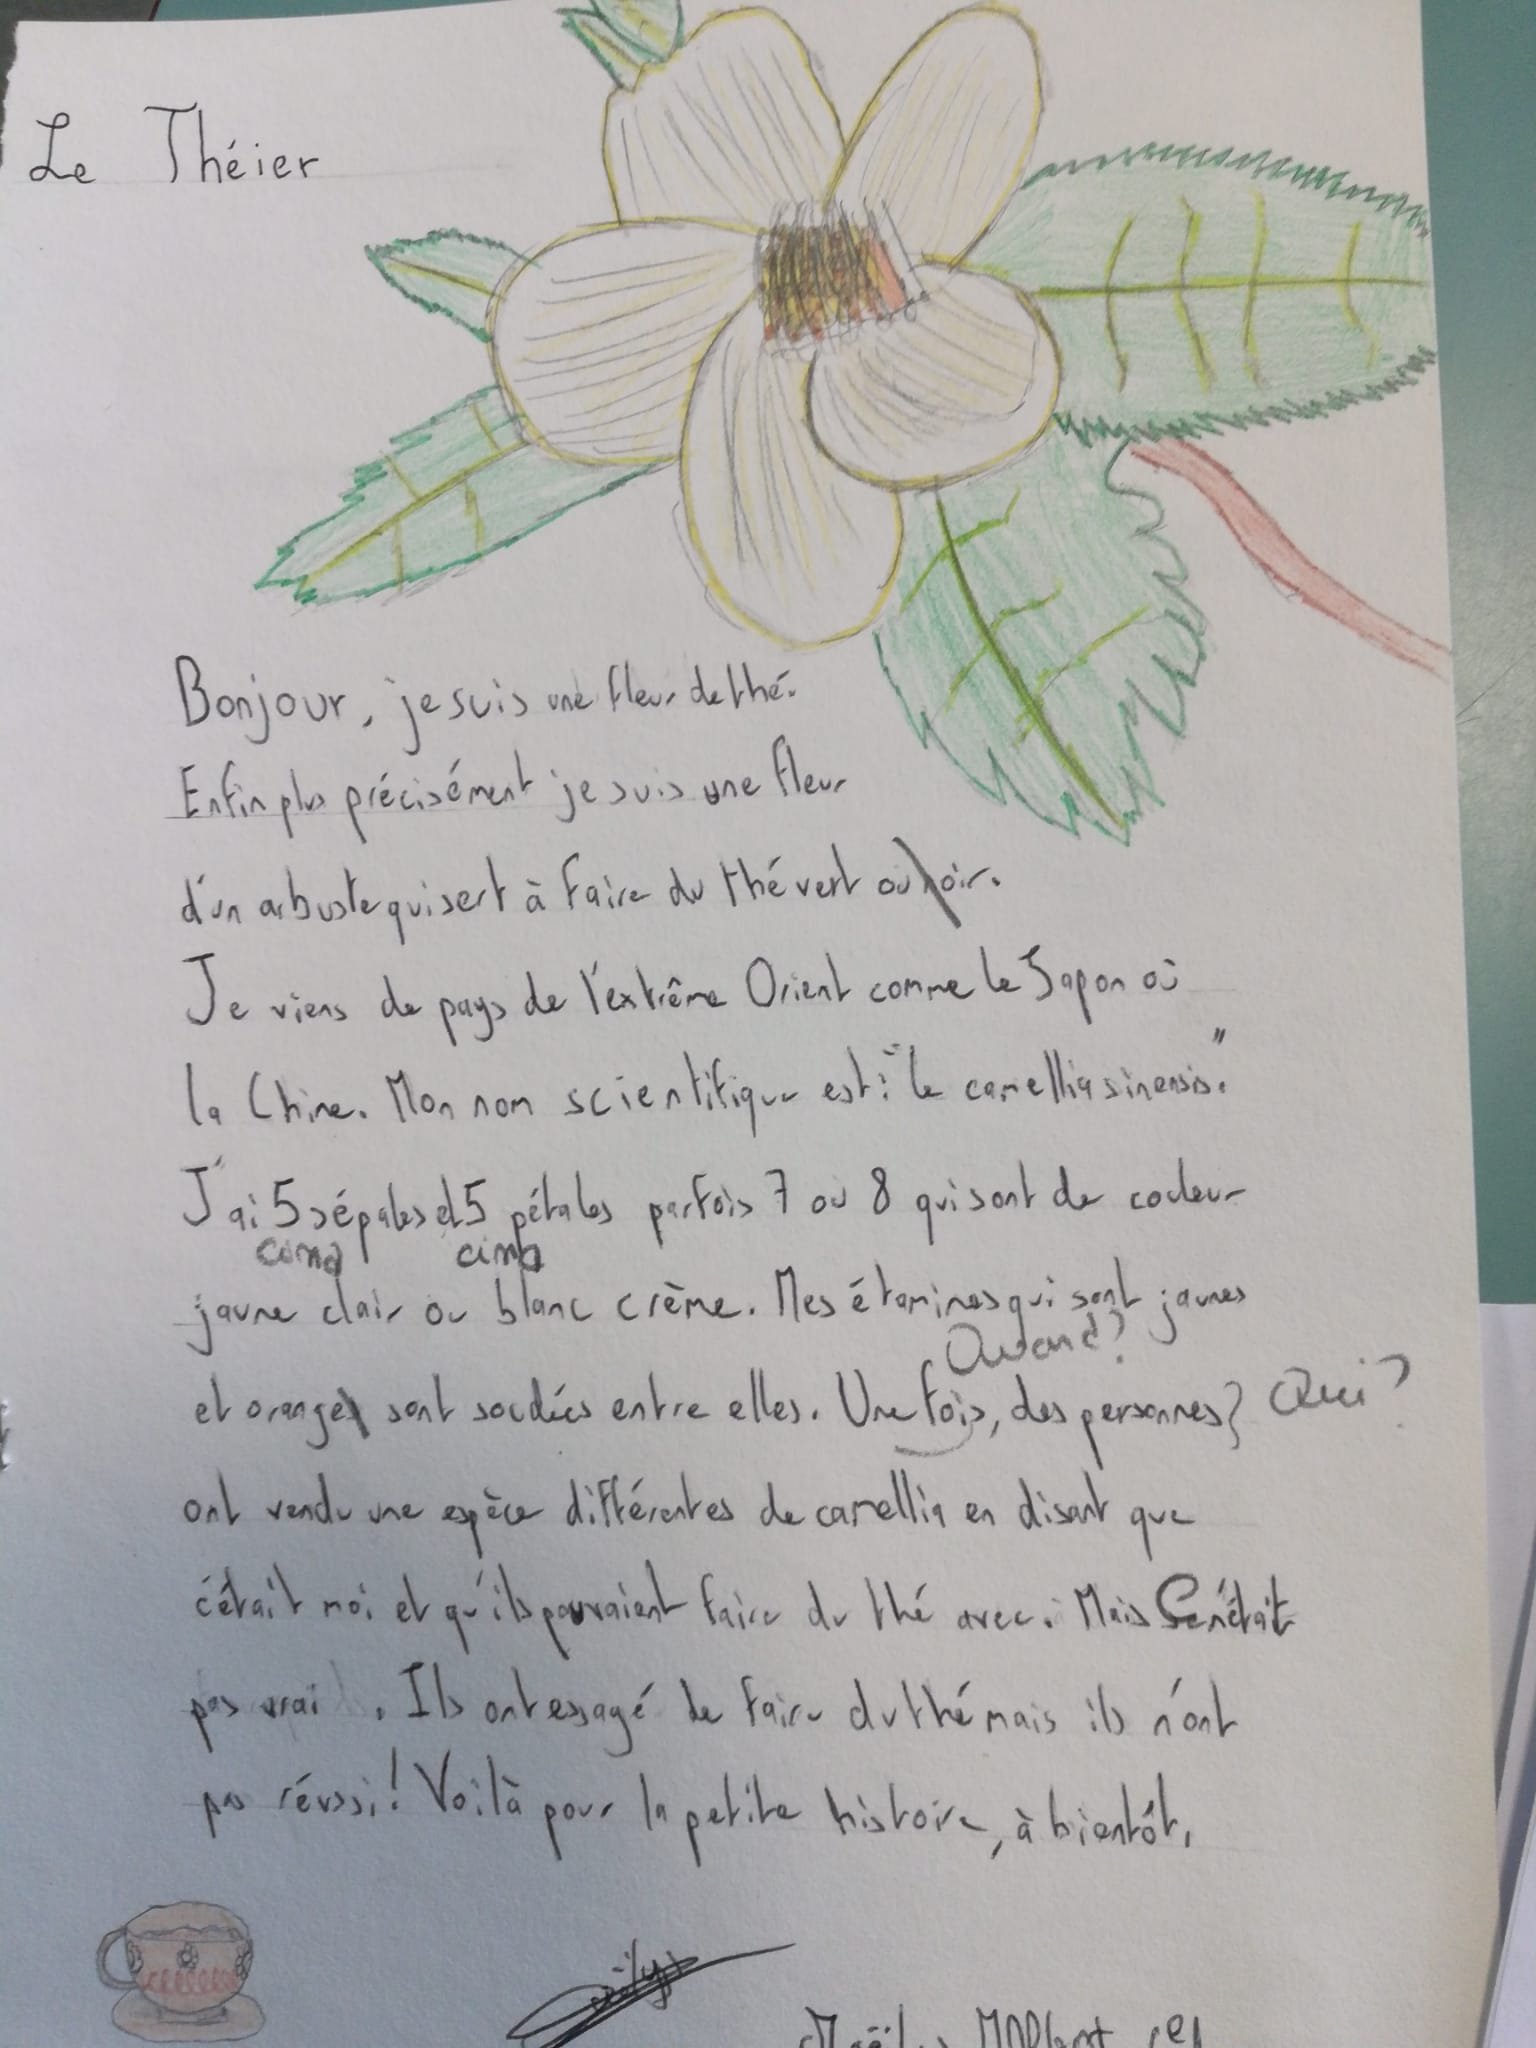 Le Théier
Bonjour, je suis une fleur de thé.
Enfin plus précisément je suis une fleur
d'un arbuste qui sert à faire du thé vert ou noir.
Je viens de pays de l'extrême Orient comme le Japon où
la Chine. Mon nom scientifique est : "le camellia sinensis."
J'ai 5 sépales et 5 pétales parfois 7 ou 8 qui sont de couleur
cinq cinq
jaune clair ou blanc crème. Mes étamines qui sont jaunes
Quand ?
et orange sont soudées entre elles. Une fois, des personnes} Qui ?
ont vendu une espèce différentes de camellia en disant que
c'était moi et qu'ils pouvaient faire du thé avec. Mais Ce n'était
pas vrai. Ils ont essayé de faire du thé mais ils n'ont
pas réussi ! Voilà pour la petite histoire, à bientôt,